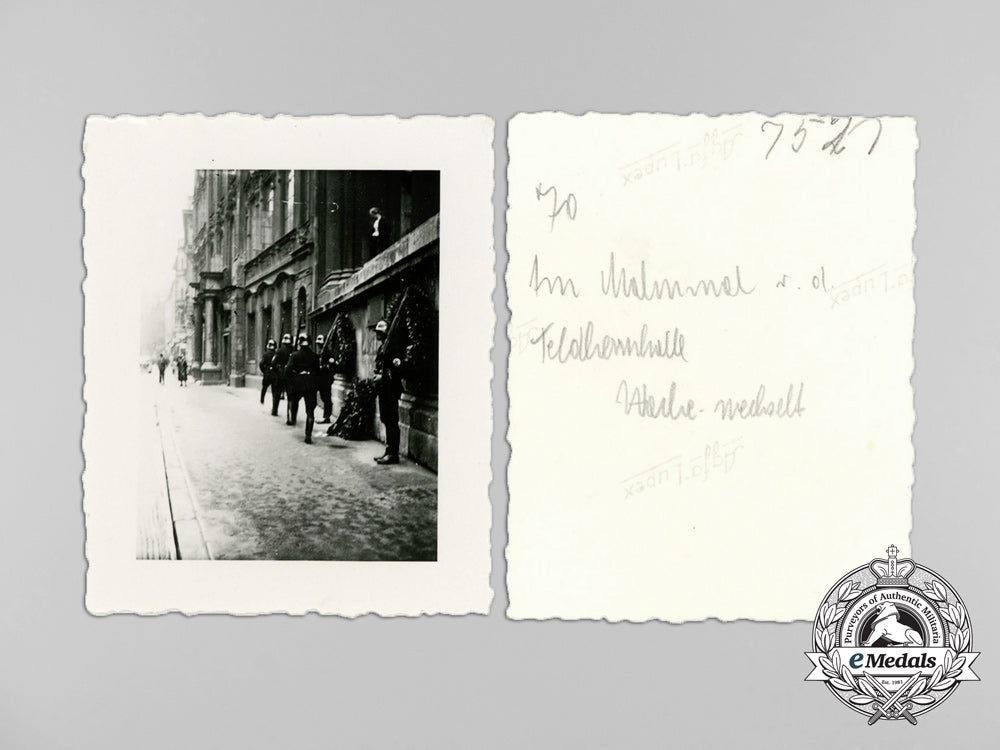 7521
Agfa Lupex
70
Am Mahnmal v. d.
Agfa Lupex
Feldherrnhalle
Wache wechselt
Agfa Lupex
Purveyors of Authentic Militaria
eMedals
Est. 1981